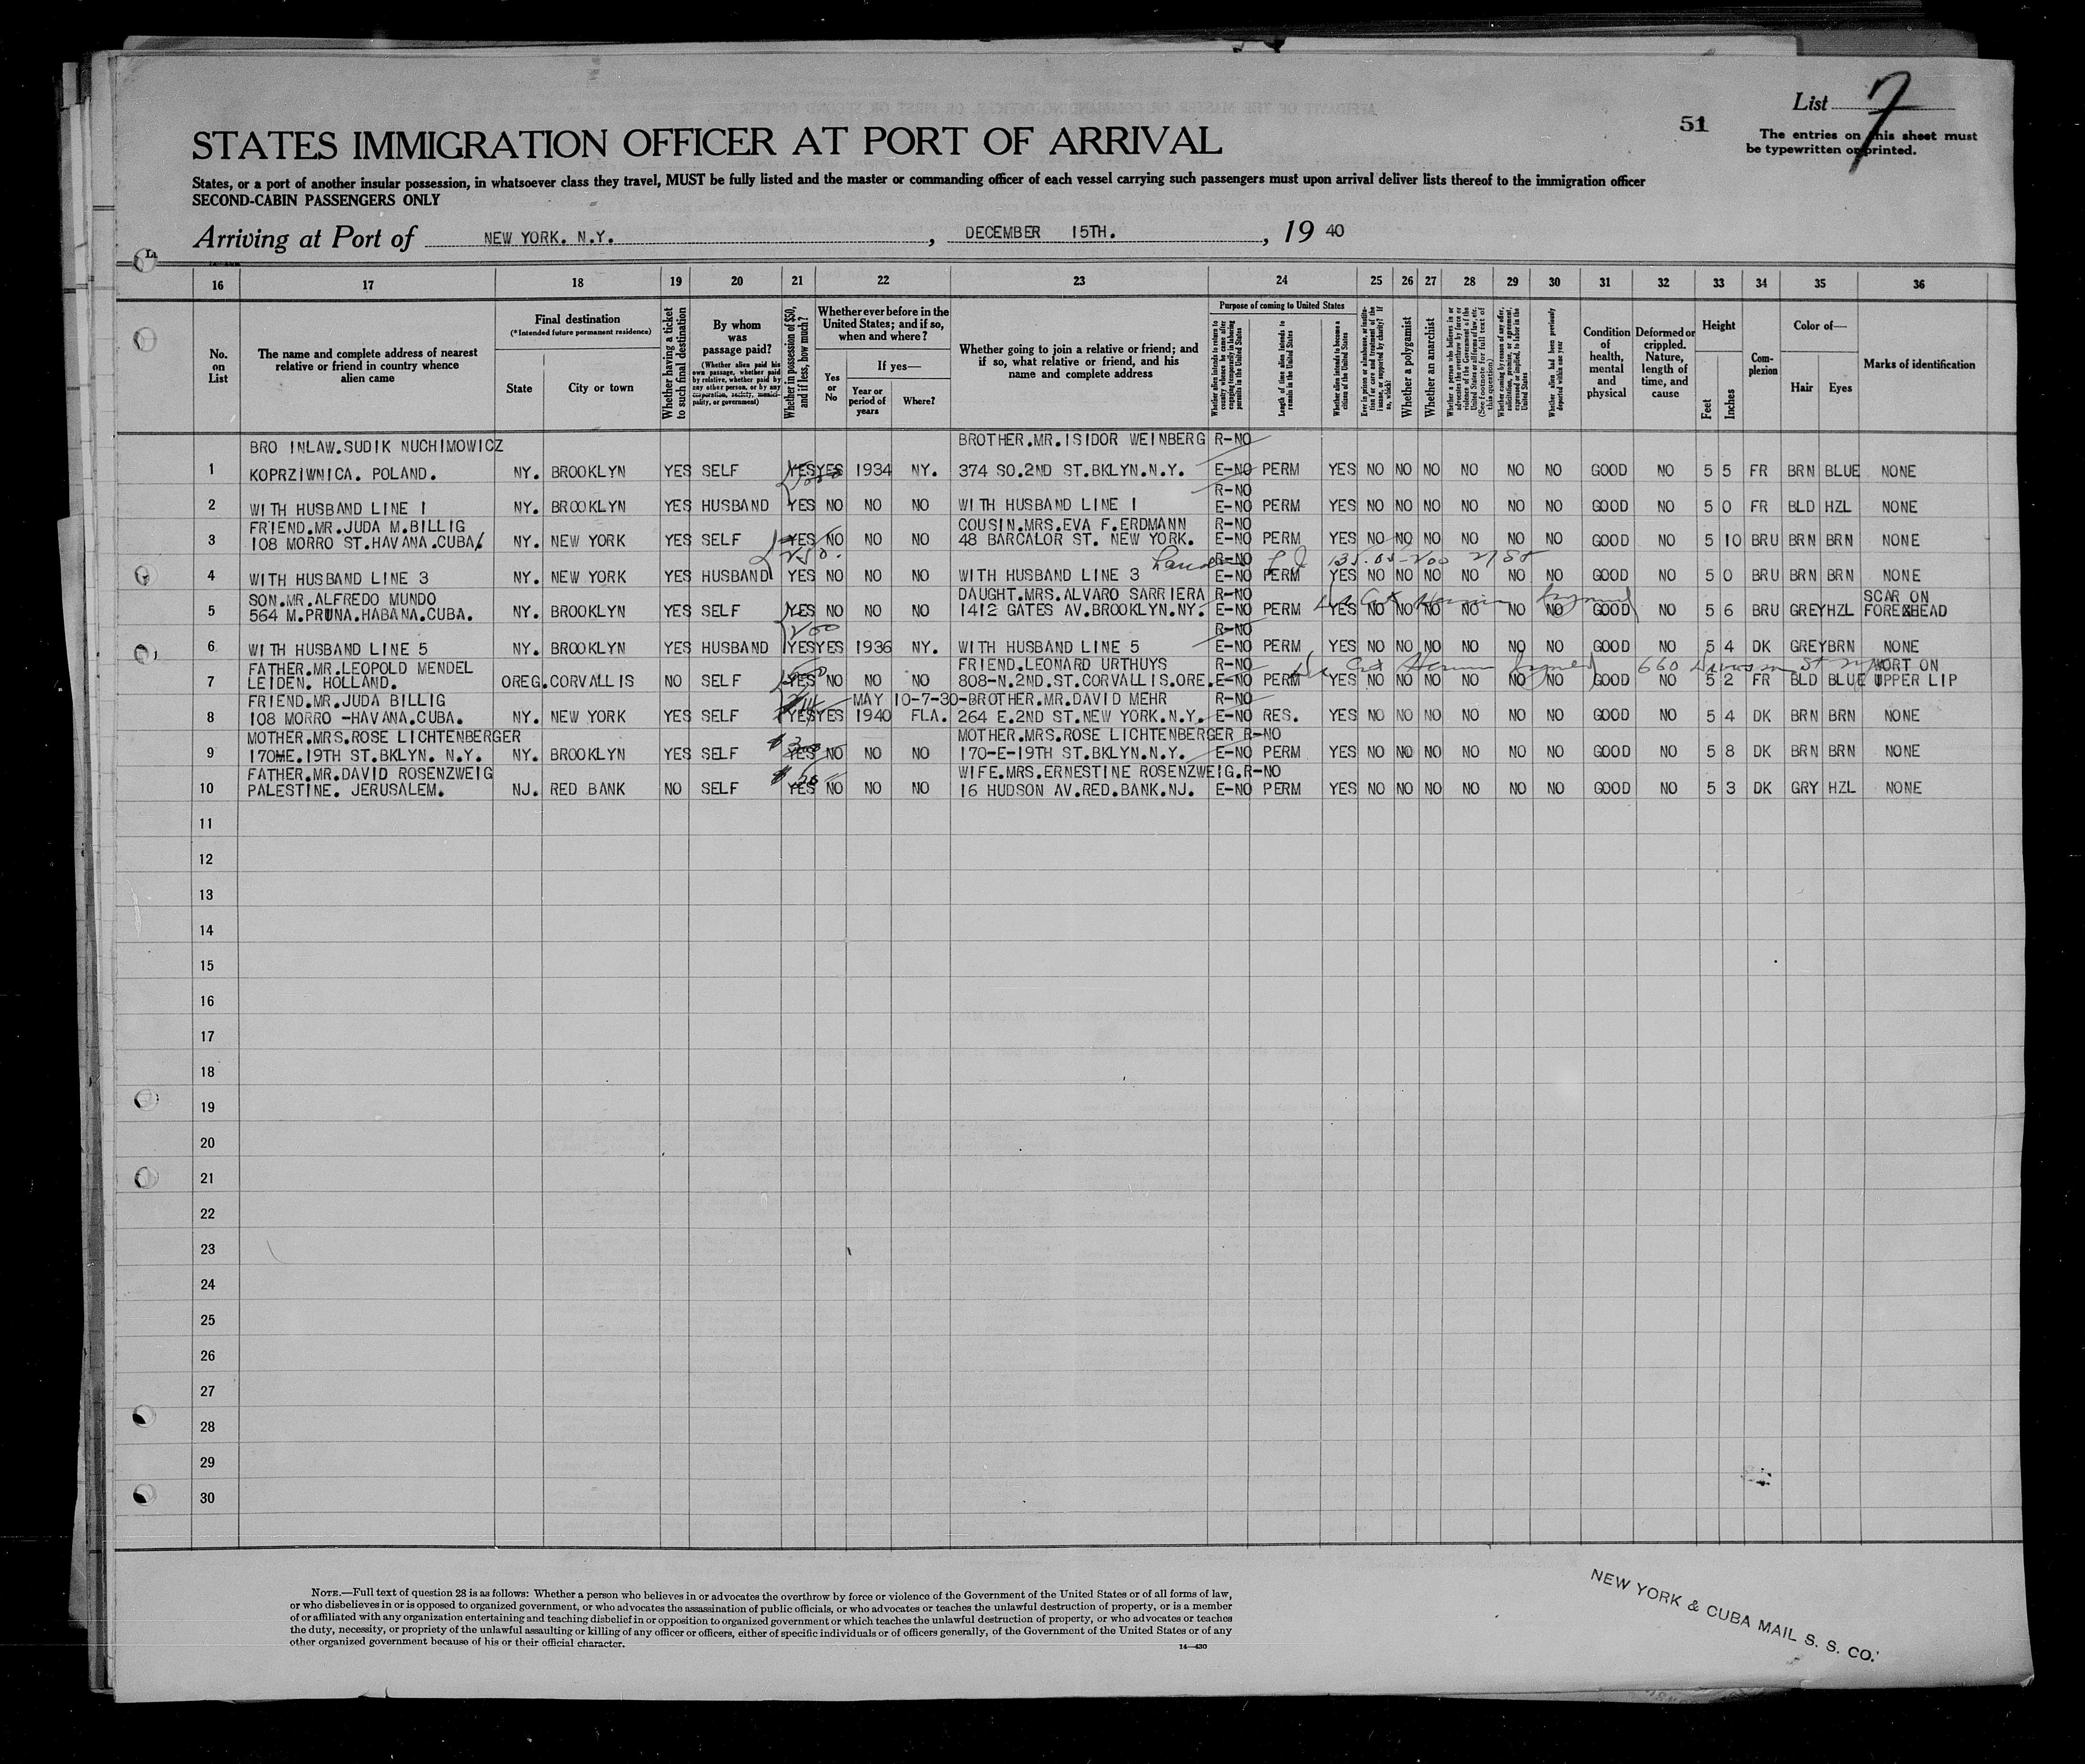 List 7
51
The entries on this sheet must
be typewritten or printed.
STATES IMMIGRATION OFFICER AT PORT OF ARRIVAL
States, or a port of another insular possession, in whatsoever class they travel, MUST be fully listed and the master or commanding officer of each vessel carrying such passengers must upon arrival deliver lists thereof to the immigration officer
SECOND-CABIN PASSENGERS ONLY
Arriving at Port of NEW YORK. N.Y. , DECEMBER 15TH. , 19 40
16 17 18 19 20 21 22 23 24 25 26 27 28 29 30 31 32 33 34 35 36
No. on List
The name and complete address of nearest relative or friend in country whence alien came
Final destination
(*Intended future permanent residence)
State
City or town
Whether having a ticket to such final destination
By whom was passage paid?
(Whether alien paid his own passage, whether paid by relative, whether paid by any other person, or by any corporation, society, municipality, or government)
Whether in possession of $50, and if less, how much?
Whether ever before in the United States; and if so, when and where?
Yes or No
If yes—
Year or period of years
Where?
Whether going to join a relative or friend; and if so, what relative or friend, and his name and complete address
Purpose of coming to United States
Whether alien intends to return to country whence he came after engaging temporarily in laboring pursuits in the United States
Length of time alien intends to remain in the United States
Whether alien intends to become a citizen of the United States
Ever in prison or almshouse, or institution for care and treatment of the insane, or supported by charity? If so, which?
Whether a polygamist
Whether an anarchist
Whether a person who believes in or advocates the overthrow by force or violence of the Government of the United States or all forms of law, etc. (See footnote for full text of this question)
Whether coming by reason of any offer, solicitation, promise, or agreement, expressed or implied, to labor in the United States
Whether alien had been previously deported within one year
Condition of health, mental and physical
Deformed or crippled. Nature, length of time, and cause
Height
Feet
Inches
Complexion
Color of—
Hair
Eyes
Marks of identification
BRO INLAW.SUDIK NUCHIMOWICZ BROTHER.MR.ISIDOR WEINBERG R-NO
1 KOPRZIWNICA. POLAND. NY. BROOKLYN YES SELF YES YES 1934 NY. 374 SO.2ND ST.BKLYN.N.Y. E-NO PERM YES NO NO NO NO NO NO GOOD NO 5 5 FR BRN BLUE NONE
R-NO
2 WITH HUSBAND LINE 1 NY. BROOKLYN YES HUSBAND YES NO NO NO WITH HUSBAND LINE 1 E-NO PERM YES NO NO NO NO NO NO GOOD NO 5 0 FR BLD HZL NONE
FRIEND.MR.JUDA M.BILLIG COUSIN.MRS.EVA F.ERDMANN R-NO
3 108 MORRO ST.HAVANA.CUBA. NY. NEW YORK YES SELF YES NO NO NO 48 BARCALOR ST. NEW YORK. E-NO PERM YES NO NO NO NO NO NO GOOD NO 5 10 BRU BRN BRN NONE
R-NO
4 WITH HUSBAND LINE 3 NY. NEW YORK YES HUSBAND YES NO NO NO WITH HUSBAND LINE 3 E-NO PERM YES NO NO NO NO NO NO GOOD NO 5 0 BRU BRN BRN NONE
SON.MR.ALFREDO MUNDO DAUGHT.MRS.ALVARO SARRIERA R-NO SCAR ON
5 564 M.PRUNA.HABANA.CUBA. NY. BROOKLYN YES SELF YES NO NO NO 1412 GATES AV.BROOKLYN.NY. E-NO PERM YES NO NO NO NO NO NO GOOD NO 5 6 BRU GREY HZL FOREXHEAD
200 R-NO
6 WITH HUSBAND LINE 5 NY. BROOKLYN YES HUSBAND YES YES 1936 NY. WITH HUSBAND LINE 5 E-NO PERM YES NO NO NO NO NO NO GOOD NO 5 4 DK GREY BRN NONE
FATHER.MR.LEOPOLD MENDEL FRIEND.LEONARD URTHUYS R-NO 660 WORT ON
7 LEIDEN. HOLLAND. OREG. CORVALLIS NO SELF YES NO NO NO 808-N.2ND.ST.CORVALLIS.ORE. E-NO PERM YES NO NO NO NO NO NO GOOD NO 5 2 FR BLD BLUE UPPER LIP
FRIEND.MR.JUDA BILLIG MAY 10-7-30-BROTHER.MR.DAVID MEHR R-NO
8 108 MORRO -HAVANA.CUBA. NY. NEW YORK YES SELF YES YES 1940 FLA. 264 E.2ND ST.NEW YORK.N.Y. E-NO RES. YES NO NO NO NO NO NO GOOD NO 5 4 DK BRN BRN NONE
MOTHER.MRS.ROSE LICHTENBERGER MOTHER.MRS.ROSE LICHTENBERGER R-NO
9 170ME.19TH ST.BKLYN. N.Y. NY. BROOKLYN YES SELF YES NO NO NO 170-E-19TH ST.BKLYN.N.Y. E-NO PERM YES NO NO NO NO NO NO GOOD NO 5 8 DK BRN BRN NONE
FATHER.MR.DAVID ROSENZWEIG WIFE.MRS.ERNESTINE ROSENZWEIG. R-NO
10 PALESTINE. JERUSALEM. NJ. RED BANK NO SELF YES NO NO NO 16 HUDSON AV.RED.BANK.NJ. E-NO PERM YES NO NO NO NO NO NO GOOD NO 5 3 DK GRY HZL NONE
11
12
13
14
15
16
17
18
19
20
21
22
23
24
25
26
27
28
29
30
NOTE.—Full text of question 28 is as follows: Whether a person who believes in or advocates the overthrow by force or violence of the Government of the United States or of all forms of law,
or who disbelieves in or is opposed to organized government, or who advocates the assassination of public officials, or who advocates or teaches the unlawful destruction of property, or is a member
of or affiliated with any organization entertaining and teaching disbelief in or opposition to organized government or which teaches the unlawful destruction of property, or who advocates or teaches
the duty, necessity, or propriety of the unlawful assaulting or killing of any officer or officers, either of specific individuals or of officers generally, of the Government of the United States or of any
other organized government because of his or their official character.
14—430
NEW YORK & CUBA MAIL S. S. CO.